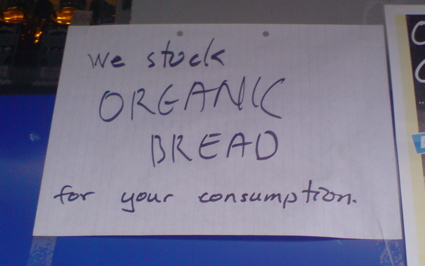 We stock
ORGANIC
BREAD
for your consumption.